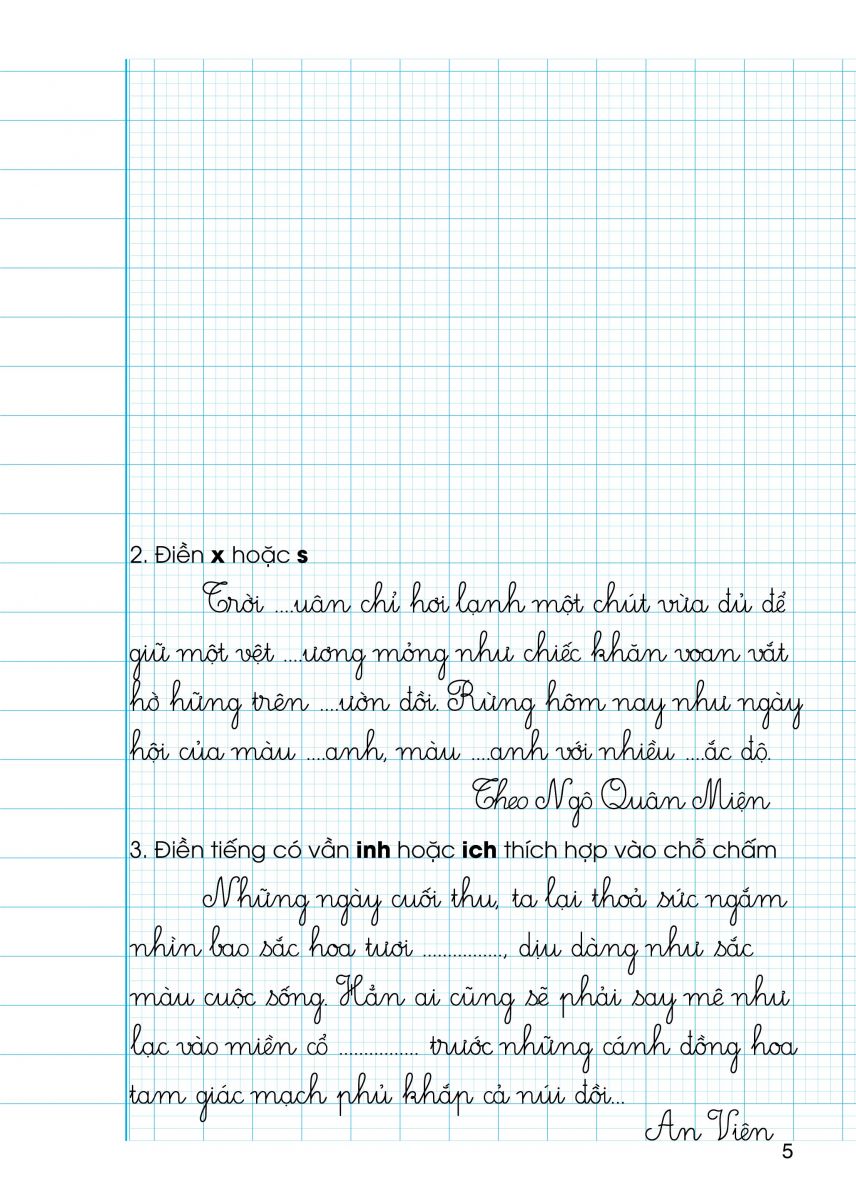 2. Điền x hoặc s
Trời ....uân chỉ hơi lạnh một chút vừa đủ để
giữ một vệt ....ương mỏng như chiếc khăn voan vắt
hờ hững trên ....ườn đồi. Rừng hôm nay như ngày
hội của màu ....anh, màu ....anh với nhiều ....ắc độ.
Theo Ngô Quân Miện
3. Điền tiếng có vần inh hoặc ich thích hợp vào chỗ chấm
Những ngày cuối thu, ta lại thoả sức ngắm
nhìn bao sắc hoa tươi ................, dịu dàng như sắc
màu cuộc sống. Hẳn ai cũng sẽ phải say mê như
lạc vào miền cổ ................ trước những cánh đồng hoa
tam giác mạch phủ khắp cả núi đồi...
An Viên
5